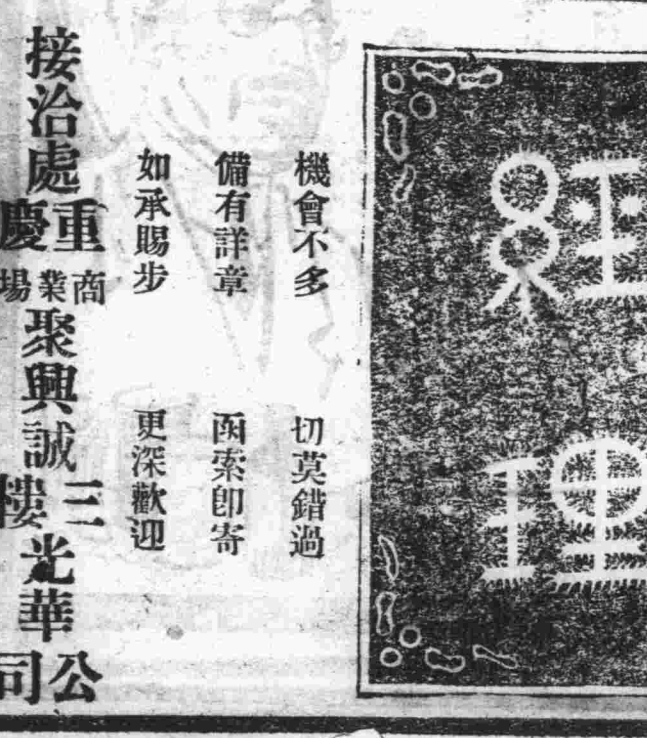 經理
機會不多 切莫錯過
備有詳章 函索卽寄
如承賜步 更深歡迎
接洽處重慶商業場聚興誠三樓光華公司